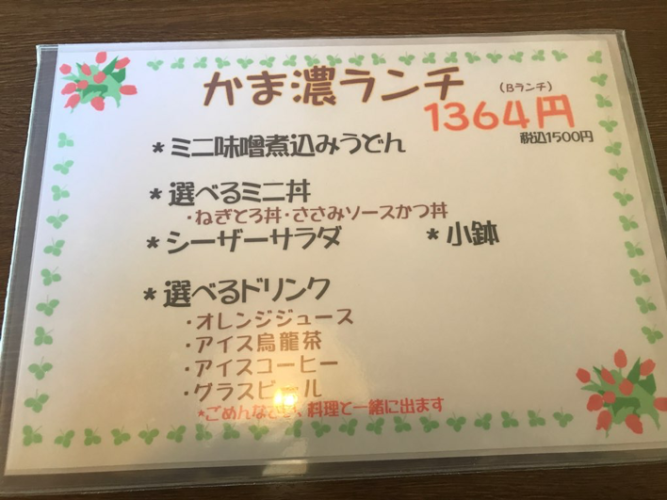 かま濃ランチ (Bランチ)
1364円
税込1500円
*ミニ味噌煮込みうどん
*選べるミニ丼
・ねぎとろ丼・ささみソースかつ丼
*シーザーサラダ *小鉢
*選べるドリンク
・オレンジジュース
・アイス烏龍茶
・アイスコーヒー
・グラスビール
*ごめんなさい、料理と一緒に出ます